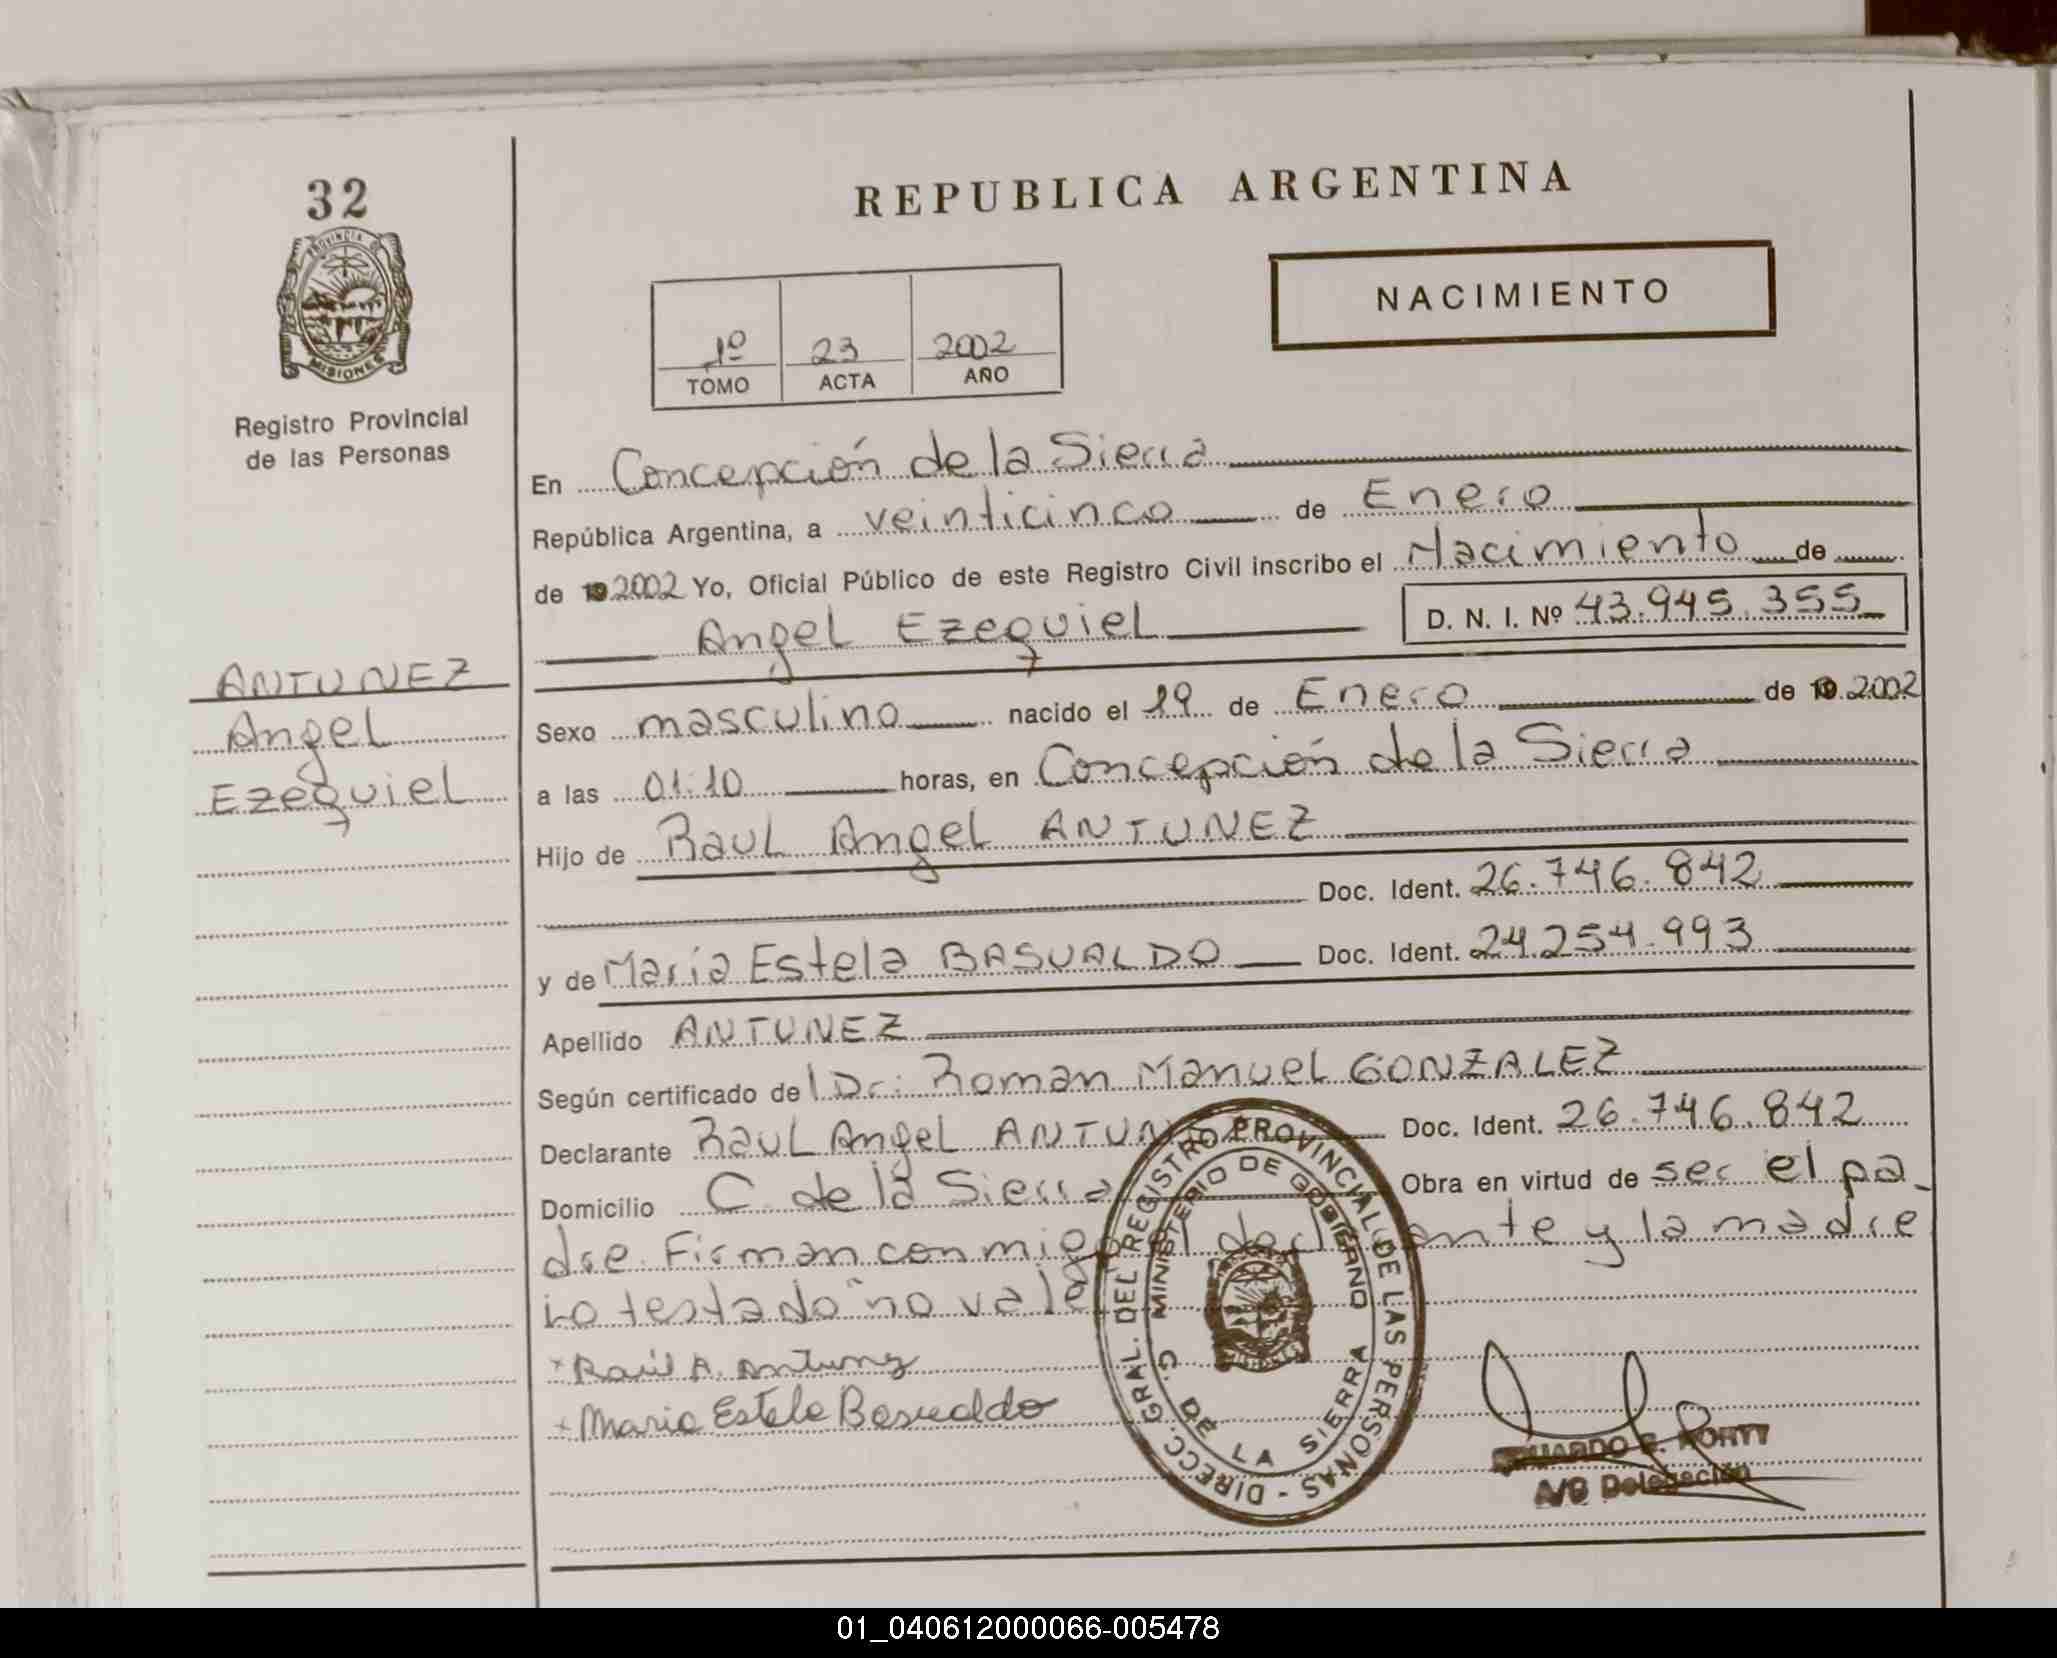 32
PROVINCIA DE
MISIONES
Registro Provincial
de las Personas
ANTUNEZ
Angel
Ezequiel
REPUBLICA ARGENTINA
NACIMIENTO
1º 23 2002
TOMO ACTA AÑO
En Concepción de la Sierra
República Argentina, a veinticinco de Enero
de 2002 Yo, Oficial Público de este Registro Civil inscribo el Nacimiento de
Angel Ezequiel D. N. I. Nº 43.945.355
Sexo masculino nacido el 19 de Enero de 2002
a las 01:10 horas, en Concepción de la Sierra
Hijo de Raul Angel ANTUNEZ
Doc. Ident. 26.746.842
y de María Estela BASUALDO Doc. Ident. 24.254.993
Apellido ANTUNEZ
Según certificado del Dr: Roman Manuel GONZALEZ
Declarante Raul Angel ANTUN Doc. Ident. 26.746.842
Domicilio C. de la Sierra Obra en virtud de ser el pa-
dre. Firman conmigo el declarante y la madre
Lo testado no vale
x Raúl A. Antunez
x Maria Estela Basualdo
DIRECC. GRAL. DEL REGISTRO PROVINCIAL DE LAS PERSONAS -
MINISTERIO DE GOBIERNO
C. DE LA SIERRA
A/C Delegación
01_040612000066-005478